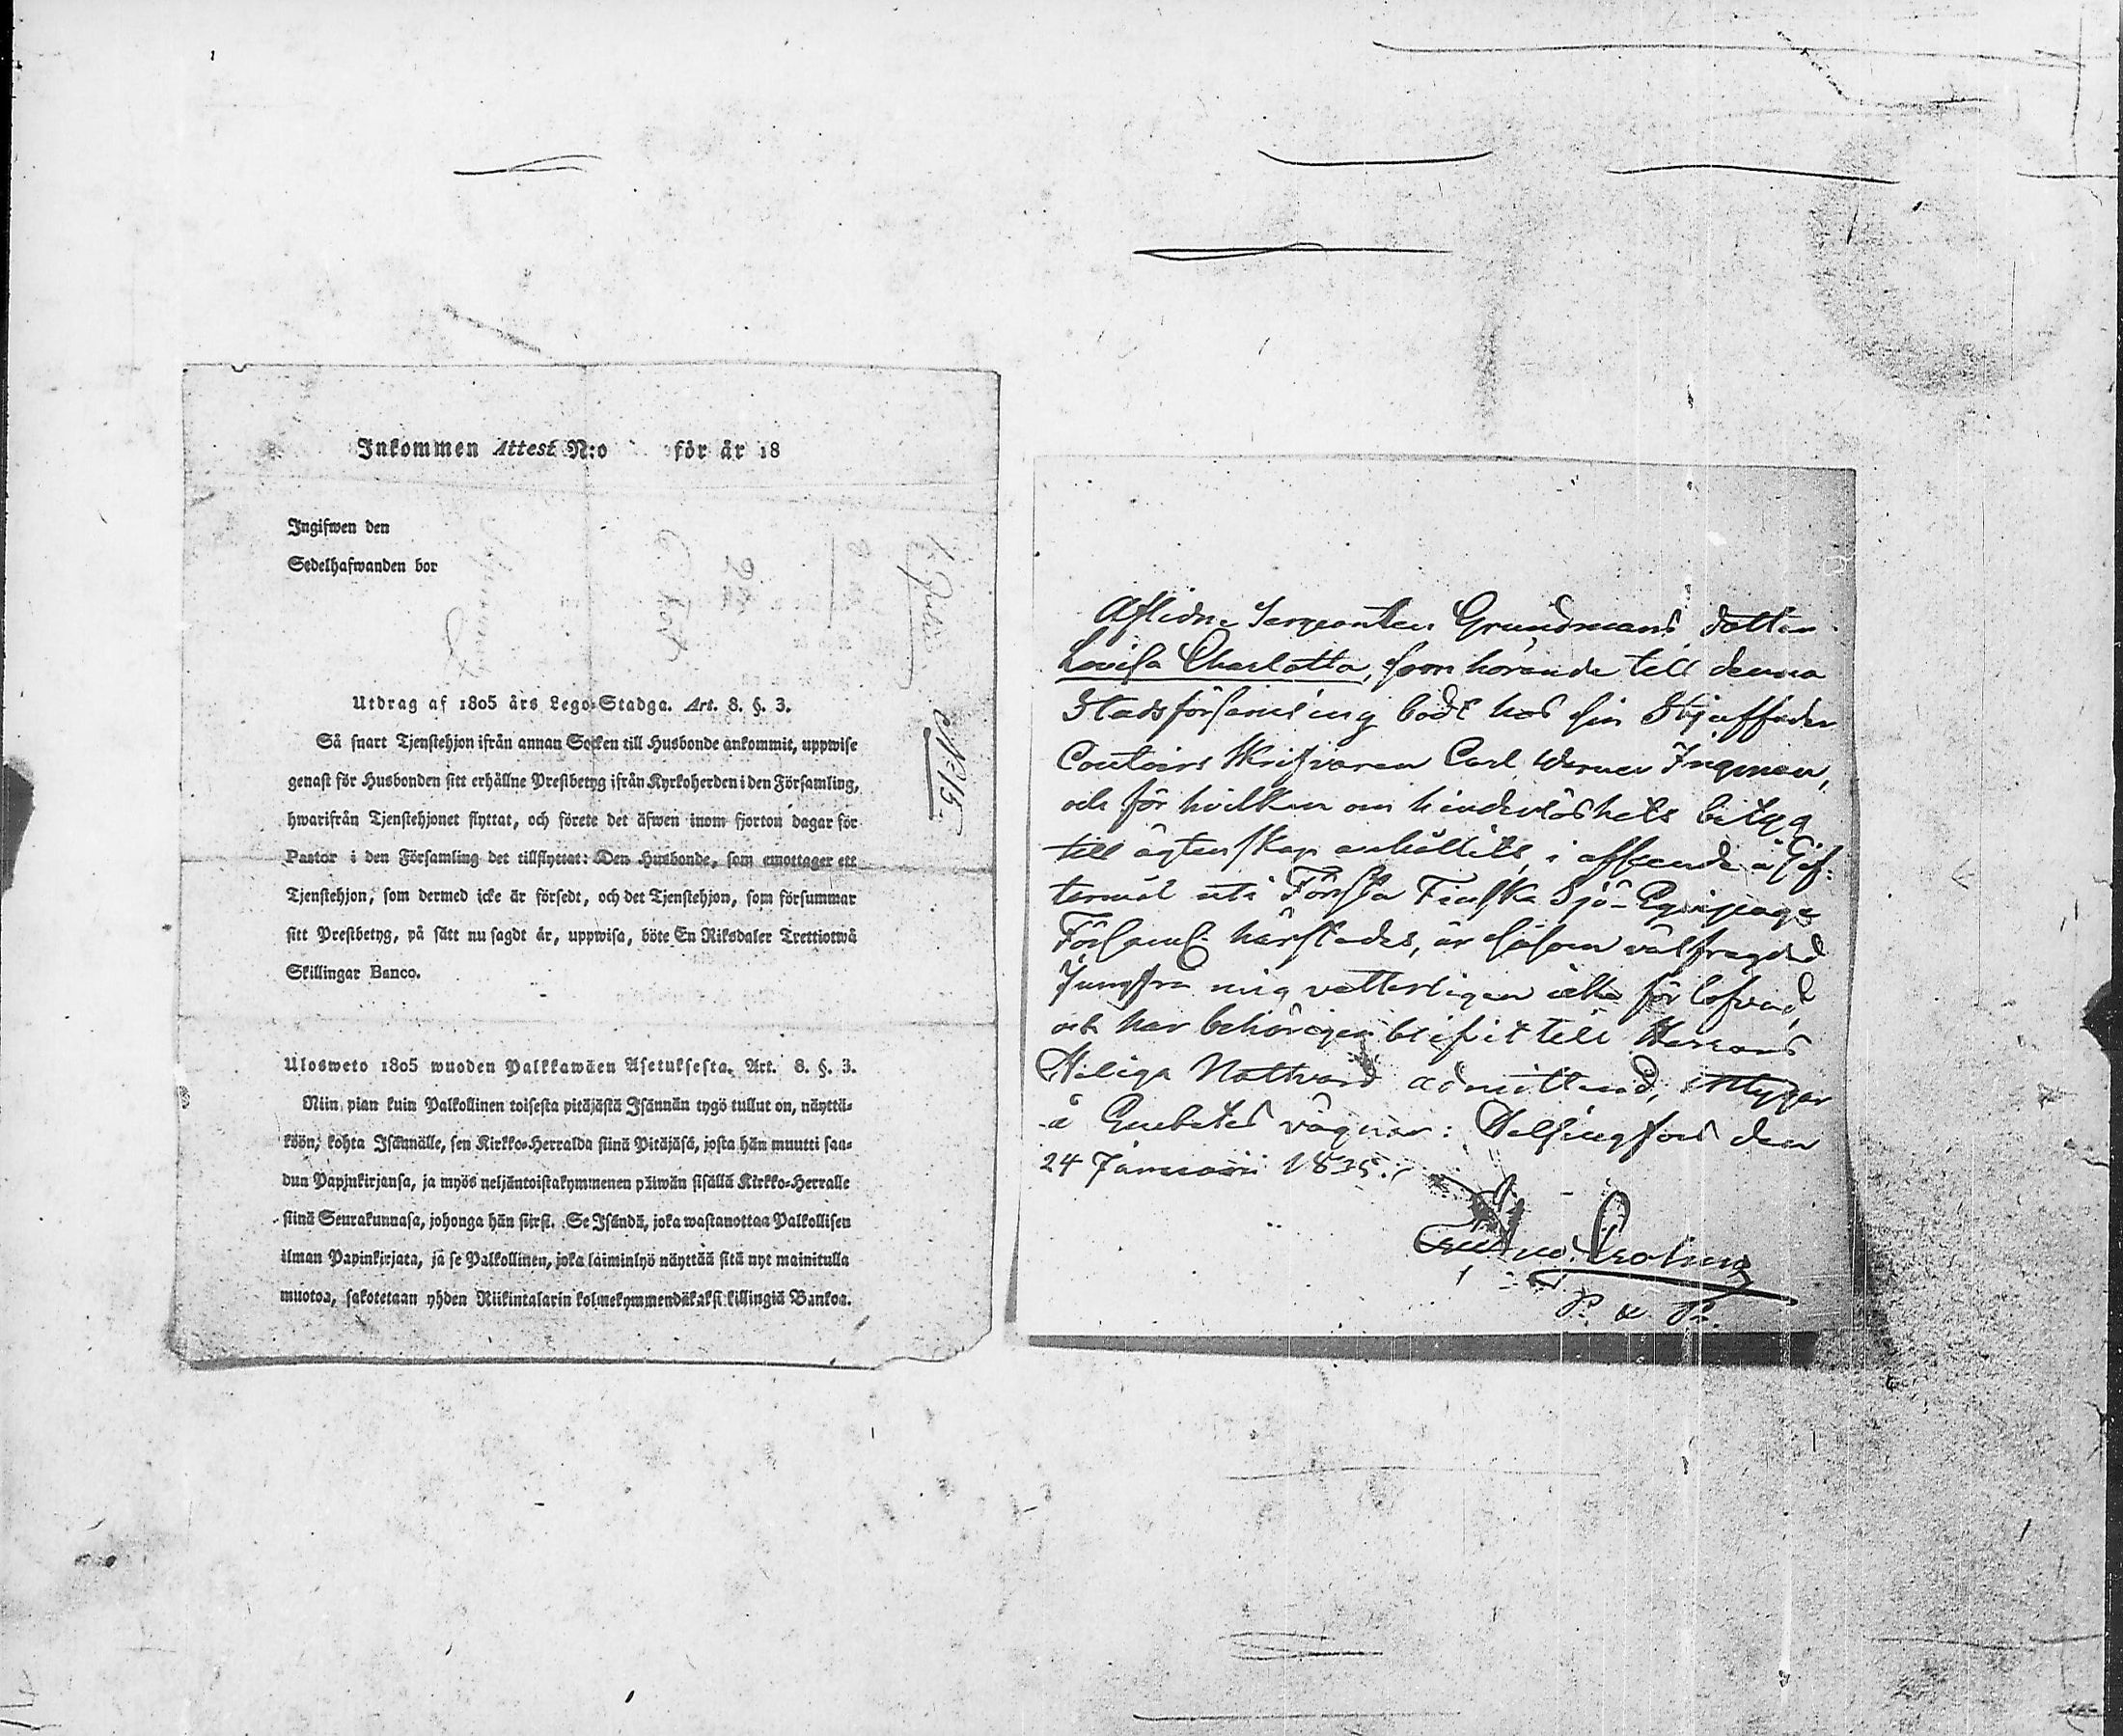 Inkommen Attest N:o för år 18
Ingifwen den
Sedelhafwanden bor
N:15.
Utdrag af 1805 års Lego-Stadga. Art. 8. §. 3.
Så snart Tjenstehjon ifrån annan Socken till Husbonde ankommit, uppwise
genast för Husbonden sitt erhållne Prestbetyg ifrån Kyrkoherden i den Församling,
hwarifrån Tjenstehjonet flyttat, och förete det äfwen inom fjorton dagar för
Pastor i den Församling det tillflyttat: Den Husbonde, som emottager ett
Tjenstehjon, som dermed icke är försedt, och det Tjenstehjon, som försummar
sitt Prestbetyg, på sätt nu sagdt är, uppwisa, böte En Riksdaler Trettiotwå
Skillingar Banco.
Ulosweto 1805 wuoden Palkkawäen Asetuksesta. Art. 8. §. 3.
Niin pian kuin Palkollinen toisesta pitäjästä Isännän tygö tullut on, näyttä-
köön, kohta Isännälle, sen Kirkko-Herralda siinä Pitäjäsä, josta hän muutti saa-
dun Papinkirjansa, ja myös neljäntoistakymmenen päiwän sisällä Kirkko-Herralle
siinä Seurakunnasa, johonga hän siirsi. Se Isändä, joka wastanottaa Palkollisen
ilman Papinkirjata, ja se Palkollinen, joka laiminlyö näyttää sitä nyt mainitulla
muotoa, sakotetaan yhden Riikintalarin kolmekymmendäkaksi killingiä Bankoa.
Aflidne Sergeanten Grundmans dotter
Lovisa Charlotta, som hörande till denna
Stadsförsamling bodt hos sin Stjuffader
Contoirs Skrifvaren Carl Werner Ingman,
och för hvilken om hinderlöshets betyg
till ägtenskap anhållits, i afseende å Gif-
termål uti Första Finska Sjö-Equipage
Församl. härstädes, är såsom välfrägdad
Jungfru mig vetterligen icke förlofvad,
och har behörigen blifvit till Herrans
Heliga Nattvard admitterad, attesterar
å Embetes vägnar: Helsingfors den
24 Januarii 1835.
P. &